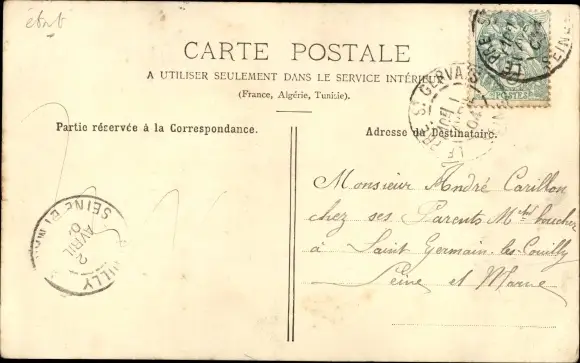 CARTE POSTALE
A UTILISER SEULEMENT DANS LE SERVICE INTÉRIEUR
(France, Algérie, Tunisie).
Partie réservée à la Correspondance.
Adresse du Destinataire.
POSTES
ST GERVAIS
LE PRÉ
SEINE
Monsieur André Carillon
chez ses Parents Md boucher
à Saint Germain-les-Couilly
Seine et Marne
SEINE ET
2
AVRIL